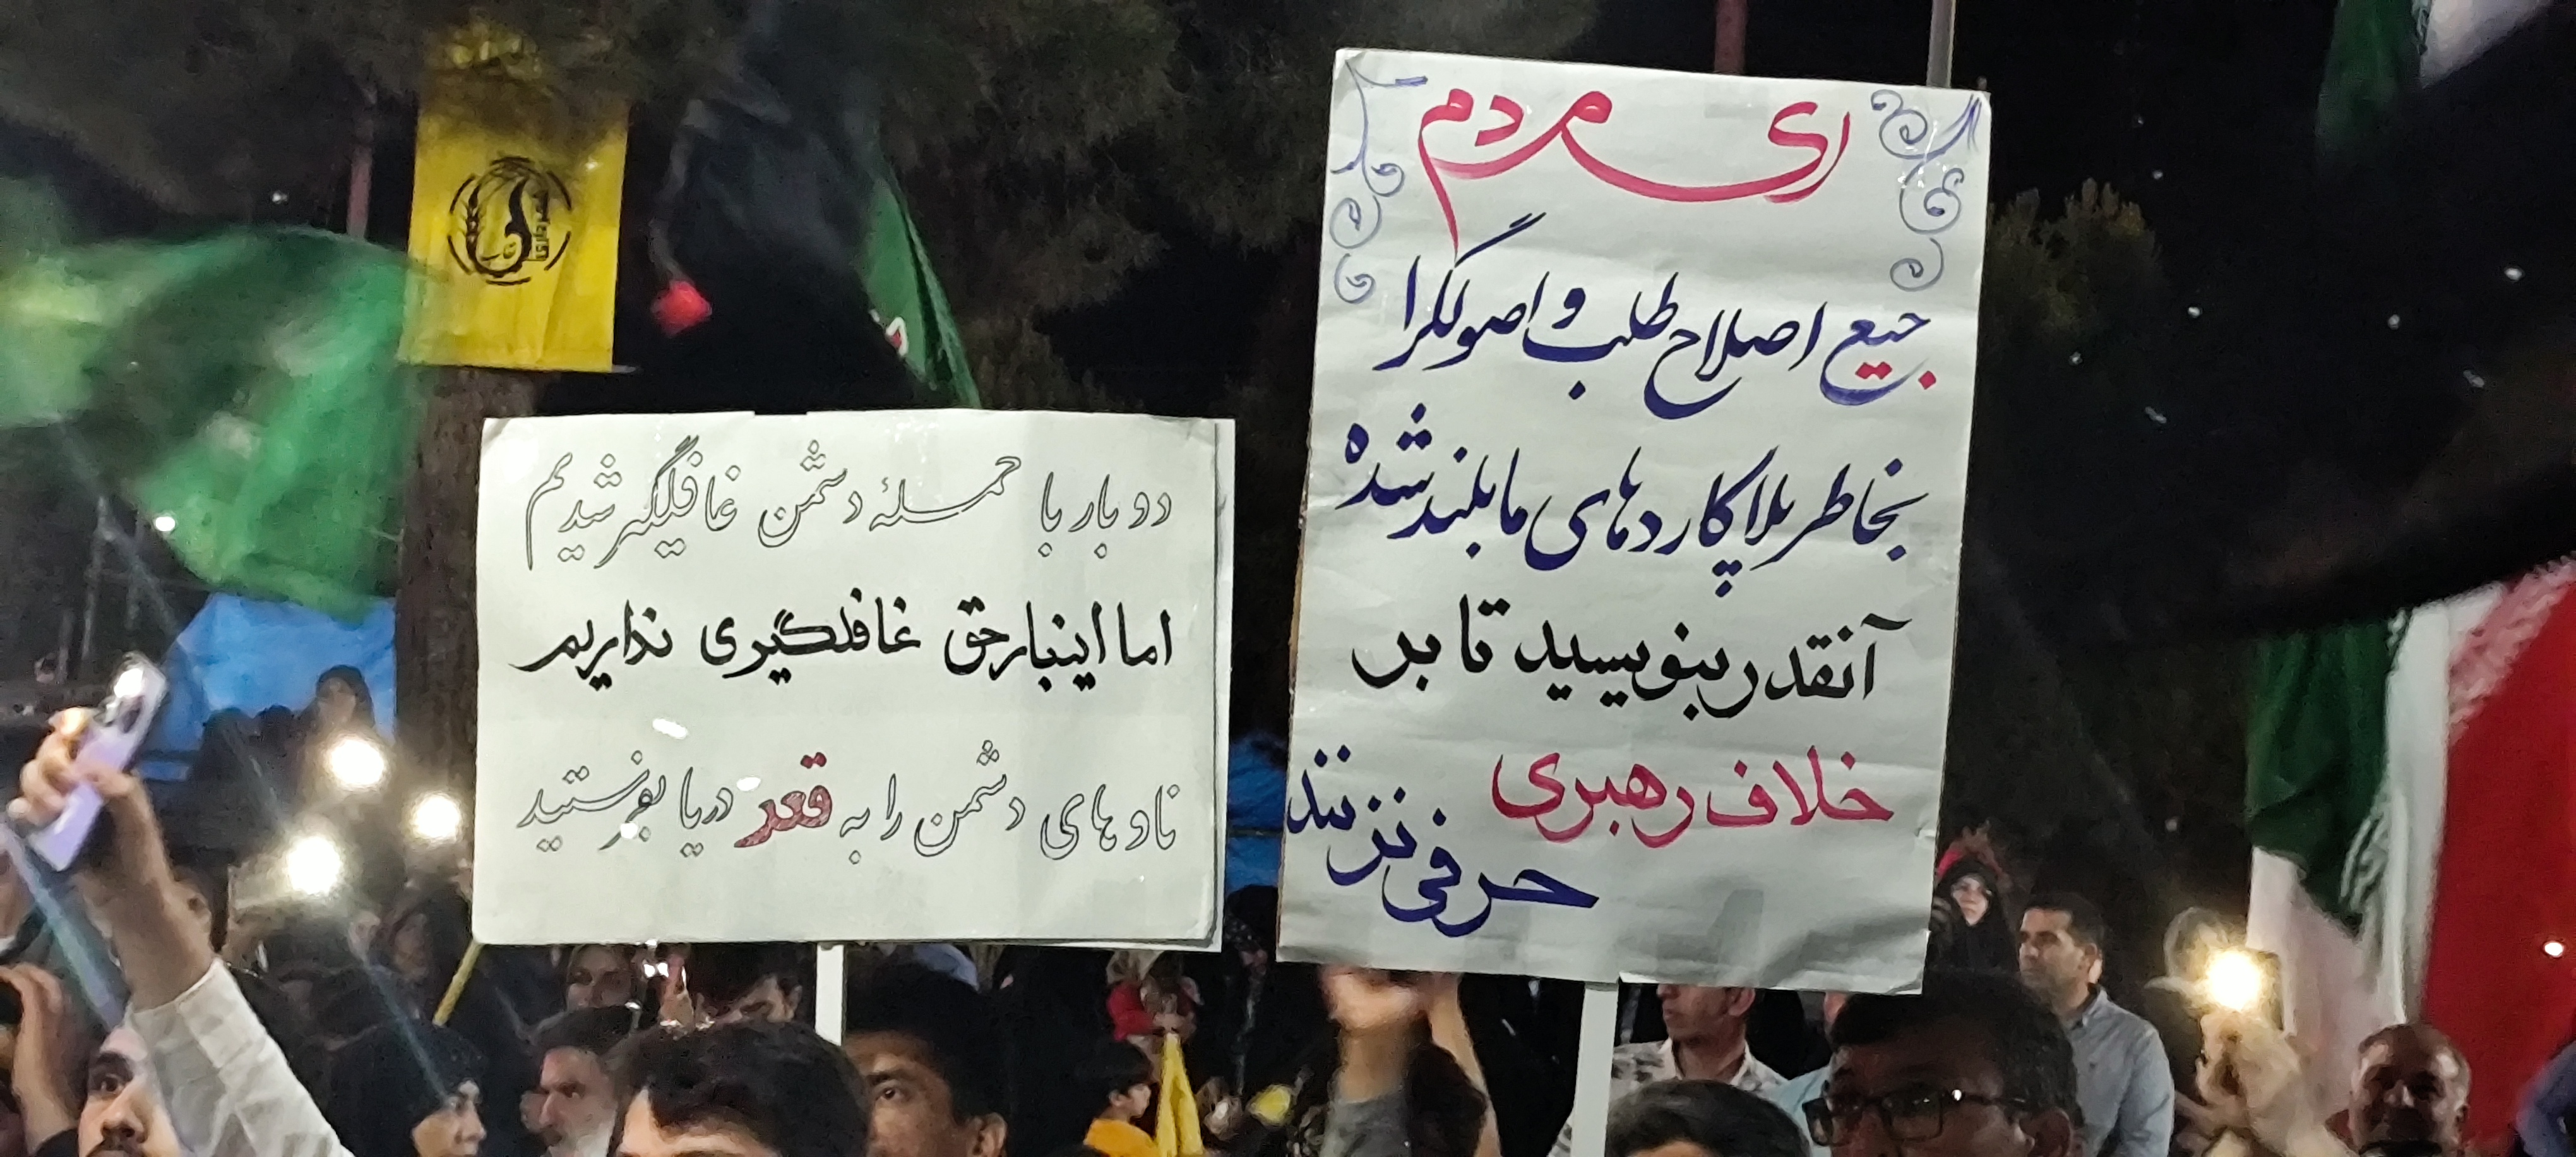 ای مردم
جیغ اصلاح طلب و اصولگرا
بخاطر پلاکاردهای ما بلند شده
آنقدر بنویسید تا بر
خلاف رهبری
حرفی نزنند
دو بار با حملهٔ دشمن غافلگیر شدیم
اما اینبار حق غافلگیری نداریم
ناوهای دشمن را به قعر دریا بفرستید